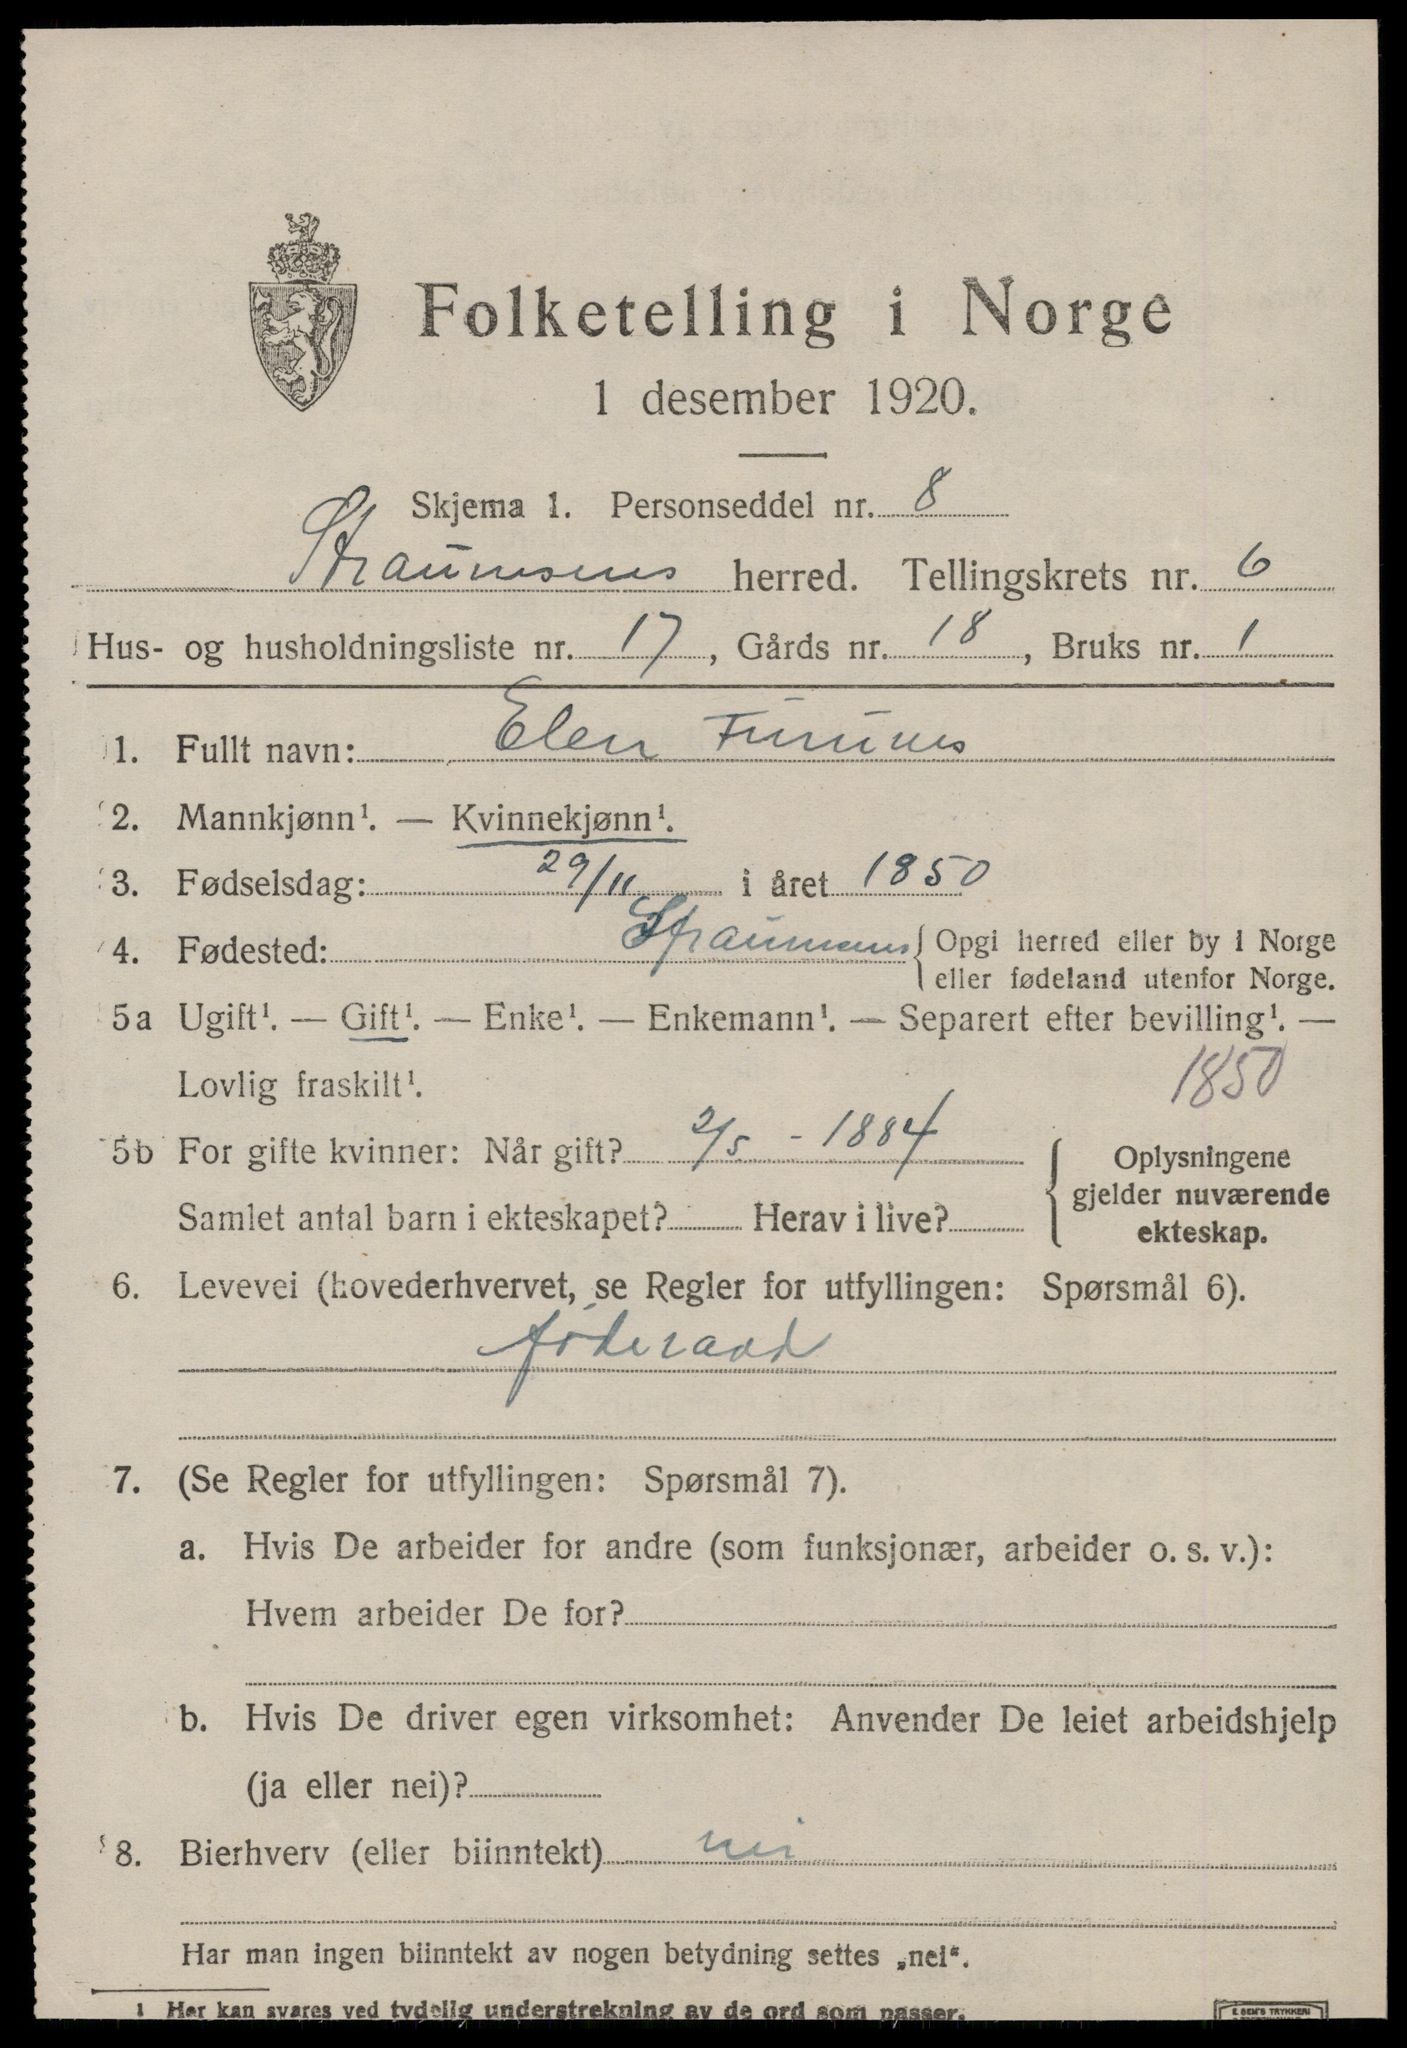 Folketelling i Norge
1 desember 1920.
Skjema 1. Personseddel nr. 8
Straumsnes herred. Tellingskrets nr. 6
Hus- og husholdningsliste nr. 17, Gårds nr. 18, Bruks nr. 1
1. Fullt navn: Elen Furunes
2. Mannkjønn¹. — Kvinnekjønn¹.
3. Fødselsdag: 29/11 i året 1850
4. Fødested: Straumsnes { Opgi herred eller by i Norge
eller fødeland utenfor Norge.
5a Ugift¹. — Gift¹. — Enke¹. — Enkemann¹. — Separert efter bevilling¹. —
Lovlig fraskilt¹. 1850
5b For gifte kvinner: Når gift? 2/5 - 1884
Samlet antal barn i ekteskapet? Herav i live?
{ Oplysningene
gjelder nuværende
ekteskap.
6. Levevei (hovederhvervet, se Regler for utfyllingen: Spørsmål 6).
føderaad
7. (Se Regler for utfyllingen: Spørsmål 7).
a. Hvis De arbeider for andre (som funksjonær, arbeider o. s. v.):
Hvem arbeider De for?
b. Hvis De driver egen virksomhet: Anvender De leiet arbeidshjelp
(ja eller nei)?
8. Bierhverv (eller biinntekt) nei
Har man ingen biinntekt av nogen betydning settes „nei“.
1 Her kan svares ved tydelig understrekning av de ord som passer.